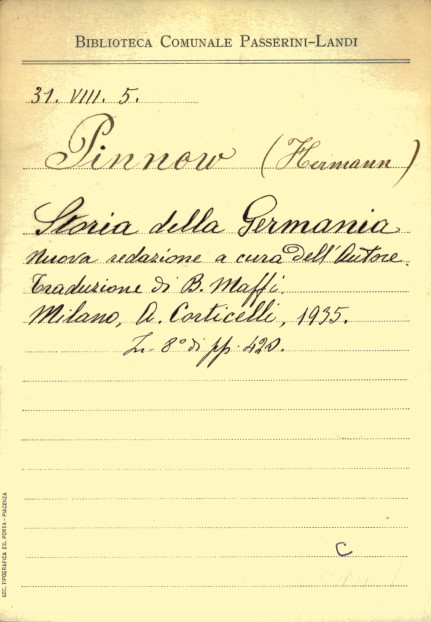 BIBLIOTECA COMUNALE PASSERINI-LANDI
31. VIII. 5.
Pinnow (Hermann)
Storia della Germania
Nuova redazione a cura dell'Autore.
Traduzione di B. Maffi.
Milano, A. Corticelli, 1935.
In 8° di pp. 420.
C
SOC. TIPOGRAFICA ED. PORTA - PIACENZA